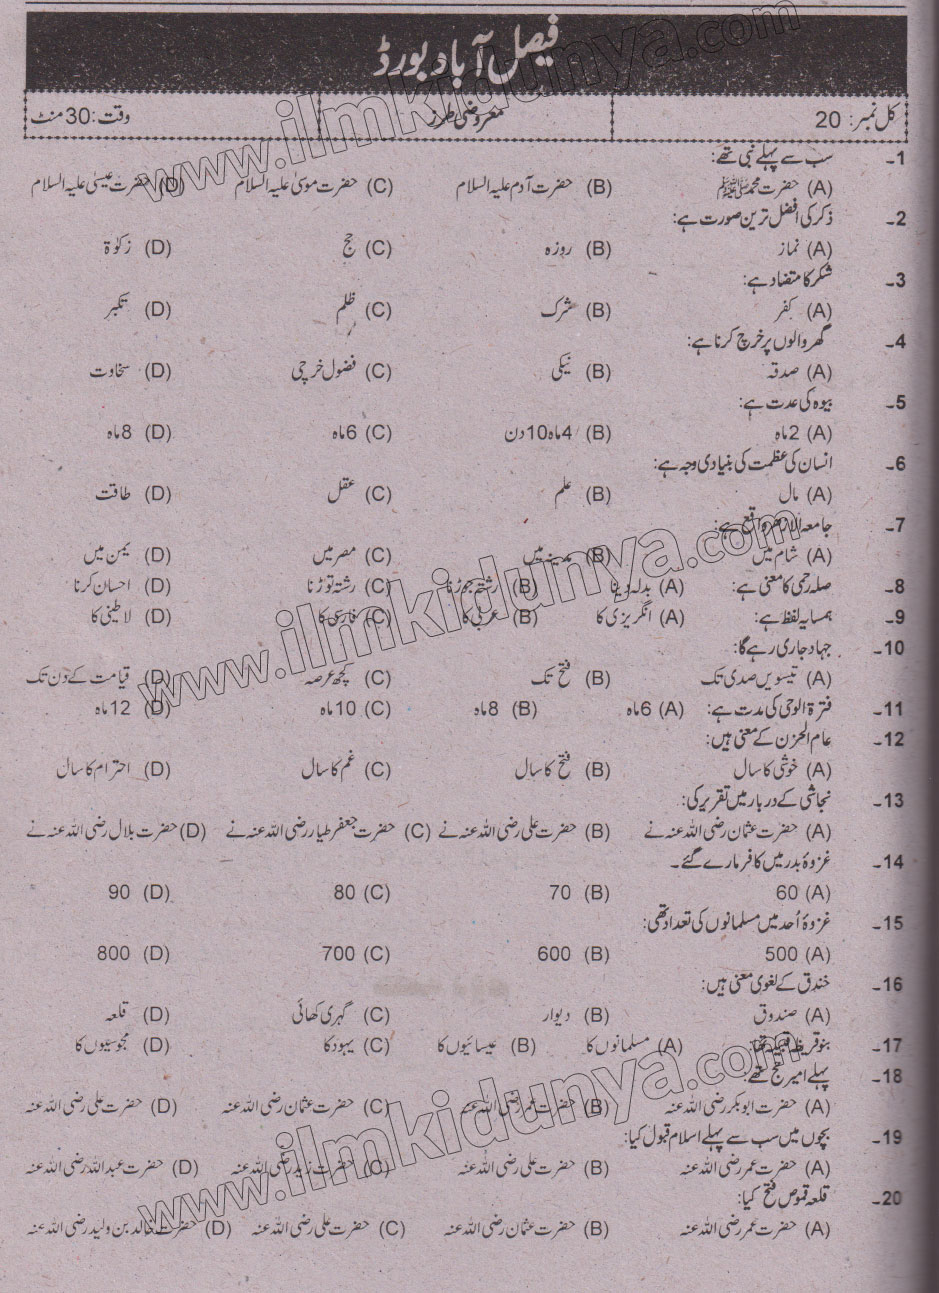 فیصل آباد بورڈ
کل نمبر: 20 معروضی طرز وقت: 30 منٹ
1۔ سب سے پہلے نبی تھے:
(A) حضرت محمدﷺ (B) حضرت آدم علیہ السلام (C) حضرت موسیٰ علیہ السلام (D) حضرت عیسیٰ علیہ السلام
2۔ ذکر کی افضل ترین صورت ہے:
(A) نماز (B) روزہ (C) حج (D) زکوٰۃ
3۔ شکر کا متضاد ہے:
(A) کفر (B) شرک (C) ظلم (D) تکبر
4۔ گھر والوں پر خرچ کرنا ہے:
(A) صدقہ (B) نیکی (C) فضول خرچی (D) سخاوت
5۔ بیوہ کی عدت ہے:
(A) 2 ماہ (B) 4 ماہ 10 دن (C) 6 ماہ (D) 8 ماہ
6۔ انسان کی عظمت کی بنیادی وجہ ہے:
(A) مال (B) علم (C) عقل (D) طاقت
7۔ جامعہ الازہر واقع ہے:
(A) شام میں (B) مدینہ میں (C) مصر میں (D) یمن میں
8۔ صلہ رحمی کا معنی ہے: (A) بدلہ دینا (B) رشتے جوڑنا (C) رشتہ توڑنا (D) احسان کرنا
9۔ ہمسایہ لفظ ہے: (A) انگریزی کا (B) عربی کا (C) فارسی کا (D) لاطینی کا
10۔ جہاد جاری رہے گا:
(A) تیسویں صدی تک (B) فتح تک (C) کچھ عرصہ (D) قیامت کے دن تک
11۔ فترۃ الوحی کی مدت ہے: (A) 6 ماہ (B) 8 ماہ (C) 10 ماہ (D) 12 ماہ
12۔ عام الحزن کے معنی ہیں:
(A) خوشی کا سال (B) فتح کا سال (C) غم کا سال (D) احترام کا سال
13۔ نجاشی کے دربار میں تقریر کی:
(A) حضرت عثمان رضی اللہ عنہ نے (B) حضرت علی رضی اللہ عنہ نے (C) حضرت جعفر طیار رضی اللہ عنہ نے (D) حضرت بلال رضی اللہ عنہ نے
14۔ غزوۂ بدر میں کافر مارے گئے۔
(A) 60 (B) 70 (C) 80 (D) 90
15۔ غزوۂ اُحد میں مسلمانوں کی تعداد تھی:
(A) 500 (B) 600 (C) 700 (D) 800
16۔ خندق کے لغوی معنی ہیں:
(A) صندوق (B) دیوار (C) گہری کھائی (D) قلعہ
17۔ بنو قریظہ قبیلہ تھا: (A) مسلمانوں کا (B) عیسائیوں کا (C) یہود کا (D) مجوسیوں کا
18۔ پہلے امیر حج تھے:
(A) حضرت ابوبکر رضی اللہ عنہ (B) حضرت عمر رضی اللہ عنہ (C) حضرت عثمان رضی اللہ عنہ (D) حضرت علی رضی اللہ عنہ
19۔ بچوں میں سب سے پہلے اسلام قبول کیا:
(A) حضرت عمر رضی اللہ عنہ (B) حضرت علی رضی اللہ عنہ (C) حضرت زید رضی اللہ عنہ (D) حضرت عبداللہ رضی اللہ عنہ
20۔ قلعہ قموص فتح کیا:
(A) حضرت عمر رضی اللہ عنہ (B) حضرت عثمان رضی اللہ عنہ (C) حضرت علی رضی اللہ عنہ (D) حضرت خالد بن ولید رضی اللہ عنہ
www.ilmkidunya.com
www.ilmkidunya.com
www.ilmkidunya.com